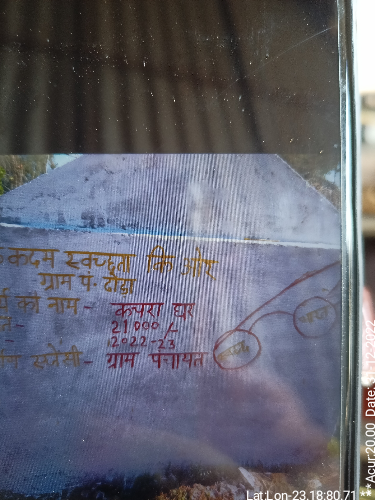 कदम स्वच्छता कि और
ग्राम पं. टोड़ा
को नाम - कचरा घर
21000/-
2022-23
- ग्राम पंचायत
स्वच्छ
भारत
Lat:Lon-23.18:80.71 ** Acur:20.00 Date: